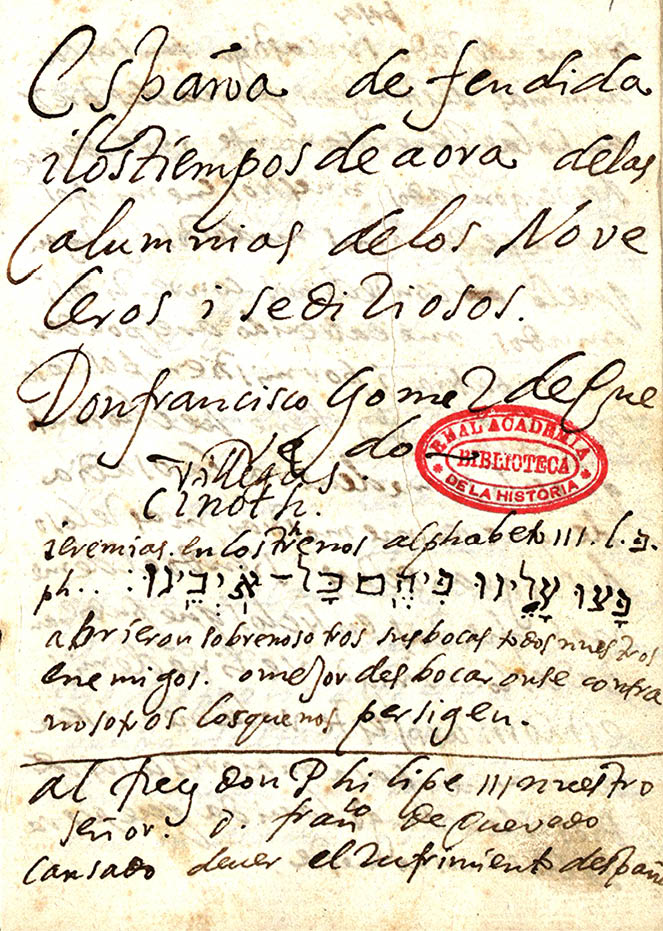 España defendida
i los tiempos de aora de las
Calumnias de los Nove
leros i sediziosos.
Don francisco Gomez de Que
ve do
Villegas.
cinoth.
REAL ACADEMIA
BIBLIOTECA
DE LA HISTORIA
ieremias. en los trenos alphabeto III. l. פ.
ph. . פָּצוּ עָלֵינוּ פִּיהֶם כָּל־אֹיְבֵינוּ:
abrieron sobre nosotros sus bocas todos nuestros
enemigos. o mejor desbocaronse contra
nosotros los que nos persigen.
al Rey don Philipe III nuestro
señor. D. franco de quevedo
cansado de ver el sufrimiento de españa